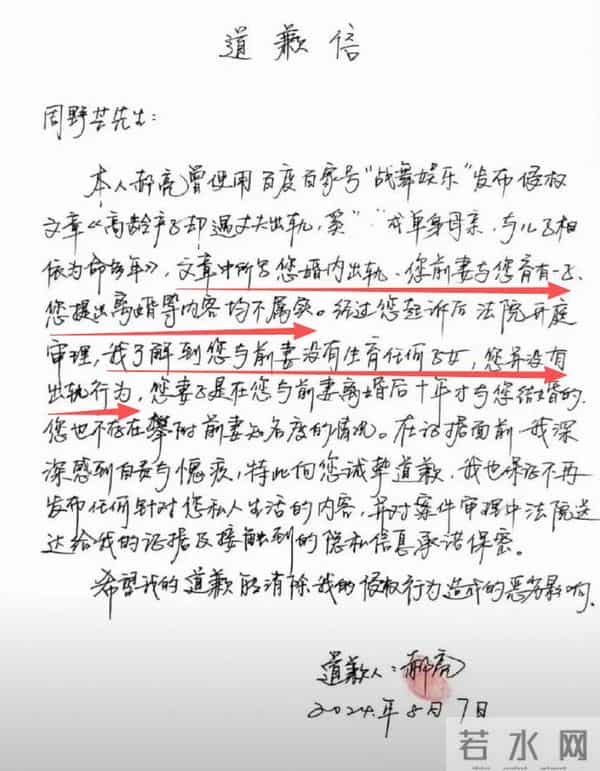 道歉信
周野芒先生：
本人郝亮曾使用百度百家号“战舞娱乐”发布侵权
文章《高龄产子却遇丈夫出轨，奚””成单身母亲，与儿子相
依为命多年》，文章中所写您婚内出轨、您前妻与您育有一子、
您提出离婚等内容均不属实。经过您起诉后法院开庭
审理，我了解到您与前妻没有生育任何子女，您并没有
出轨行为，您妻子是在您与前妻离婚后十年才与您结婚的，
您也不存在攀附前妻知名度的情况。在证据面前，我深
深感到自责与愧疚，特此向您诚挚道歉，我也保证不再
发布任何针对您私人生活的内容，并对案件审理中法院送
达给我的证据及接触到的隐私信息承诺保密。
希望我的道歉能消除我的侵权行为造成的恶劣影响。
道歉人：郝亮
2024年8月7日
若水网